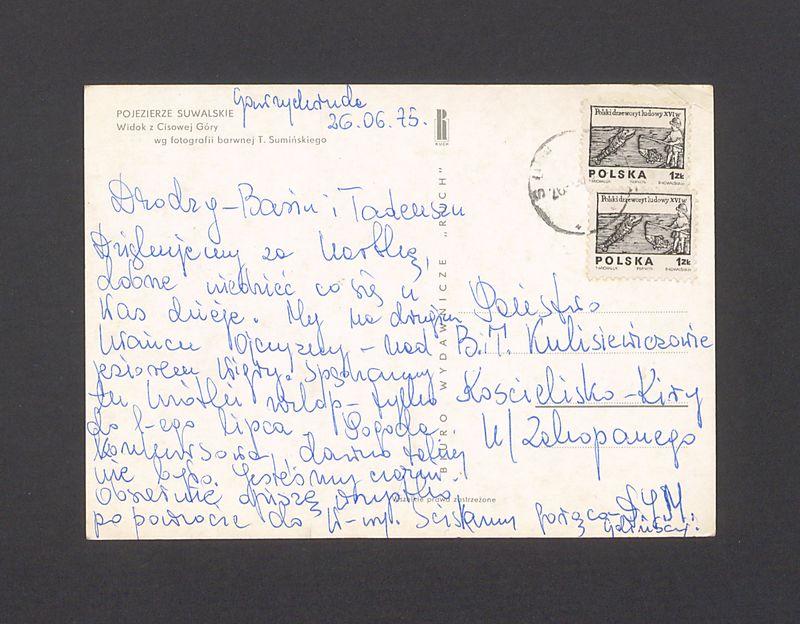 POJEZIERZE SUWALSKIE
Widok z Cisowej Góry
wg fotografii barwnej T. Sumińskiego
26.06.75.
RUCH
Drodzy - Basiu i Tadeuszu
Dziękujemy za kartkę,
dobrze wiedzieć co się u
Was dzieje. My na drugim
krańcu Ojczyzny - nad
jeziorem Wigry. Spędzamy
tu krótki urlop - tylko
do 1-ego lipca. Pogoda
koncertowa, dawno takiej
nie było. Jesteśmy
po powrocie do W-wy. Ściskamy gorąco -
BIURO WYDAWNICZE „RUCH”
wszelkie prawa zastrzeżone
Polski drzeworyt ludowy XVI w
POLSKA 1 ZŁ
Polski drzeworyt ludowy XVI w
POLSKA 1 ZŁ
Państwo
B.i T. Kulisiewiczowie
Kościelisko - Kiry
k/Zakopanego